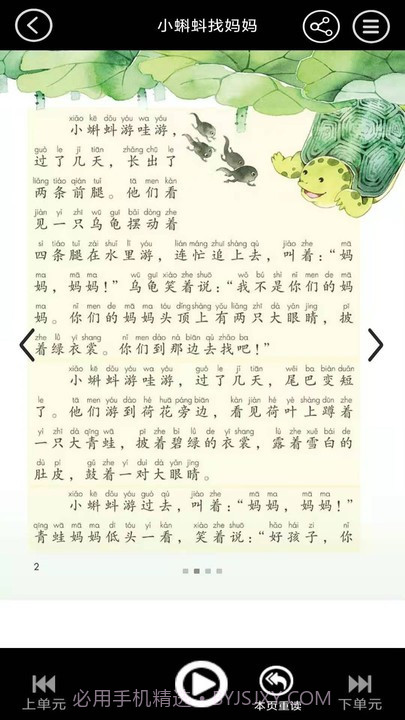 小蝌蚪找妈妈
xiǎo kē dǒu yóu wa yóu
小蝌蚪游哇游，
guò le jǐ tiān zhǎng chū le
过了几天，长出了
liǎng tiáo qián tuǐ tā men kàn
两条前腿。他们看
jiàn yì zhī wū guī bǎi dòng zhe
见一只乌龟摆动着
sì tiáo tuǐ zài shuǐ lǐ yóu lián máng zhuī shàng qù jiào zhe mā
四条腿在水里游，连忙追上去，叫着：“妈
ma mā ma wū guī xiào zhe shuō wǒ bú shì nǐ men de mā
妈，妈妈！”乌龟笑着说：“我不是你们的妈
ma nǐ men de mā ma tóu dǐng shàng yǒu liǎng zhī dà yǎn jing pī
妈。你们的妈妈头顶上有两只大眼睛，披
zhe lǜ yī shang nǐ men dào nà biān qù zhǎo ba
着绿衣裳。你们到那边去找吧！”
xiǎo kē dǒu yóu wa yóu guò le jǐ tiān wěi ba biàn duǎn
小蝌蚪游哇游，过了几天，尾巴变短
le tā men yóu dào hé huā páng biān kàn jiàn hé yè shàng dūn zhe
了。他们游到荷花旁边，看见荷叶上蹲着
yì zhī dà qīng wā pī zhe bì lǜ de yī shang lù zhe xuě bái de
一只大青蛙，披着碧绿的衣裳，露着雪白的
dù pí gǔ zhe yí duì dà yǎn jing
肚皮，鼓着一对大眼睛。
xiǎo kē dǒu yóu guò qù jiào zhe mā ma mā ma
小蝌蚪游过去，叫着：“妈妈，妈妈！”
qīng wā mā ma dī tóu yí kàn xiào zhe shuō hǎo hái zi nǐ
青蛙妈妈低头一看，笑着说：“好孩子，你
2
上单元
本页重读
下单元
必用手机精选·BYJSJXY.COM